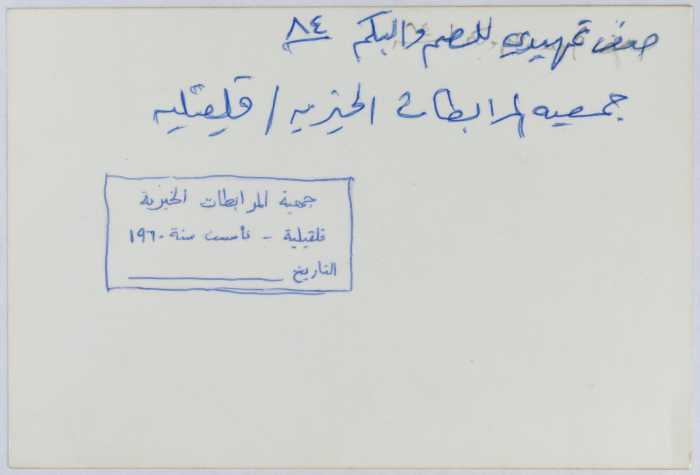 صف تمهيدي للصم والبكم ٨٤
جمعيه المرابطات الخيريه / قلقيليه
جمعية المرابطات الخيرية
قلقيلية - تأسست سنة ١٩٦٠
التاريخ